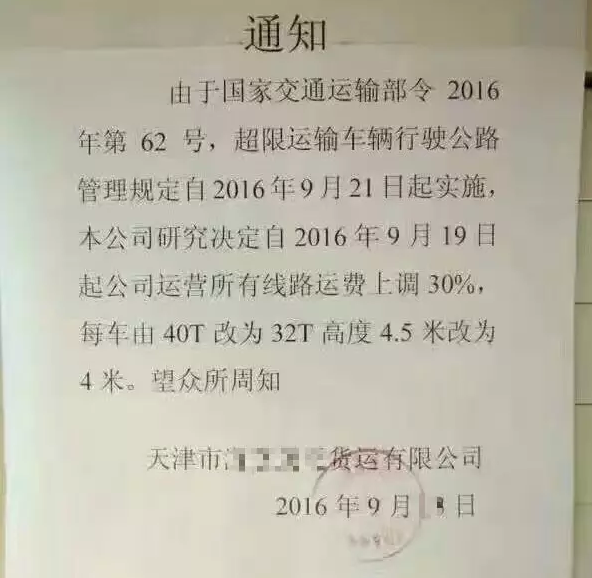 通知
由于国家交通运输部令 2016
年第 62 号，超限运输车辆行驶公路
管理规定自2016年9月21日起实施，
本公司研究决定自2016年9月19日
起公司运营所有线路运费上调30%，
每车由40T改为32T高度4.5米改为
4米。望众所周知
天津市 货运有限公司
2016年9月 日